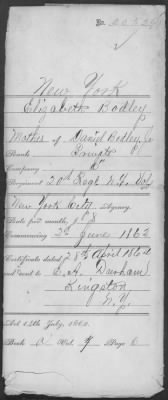 No.
New York
Elizabeth Bodley,
Mother of David Bodley, Jr
Rank Private
Company "
Regiment 20th Regt N.Y. Vols
New York City, Agency.
Rate per month, $ 8
Commencing 2d June 1863
Certificate dated 28th April 1864
and sent to E. A. Durham
Kingston
N.Y.
Act 14th July, 1862.
Book Vol. Page